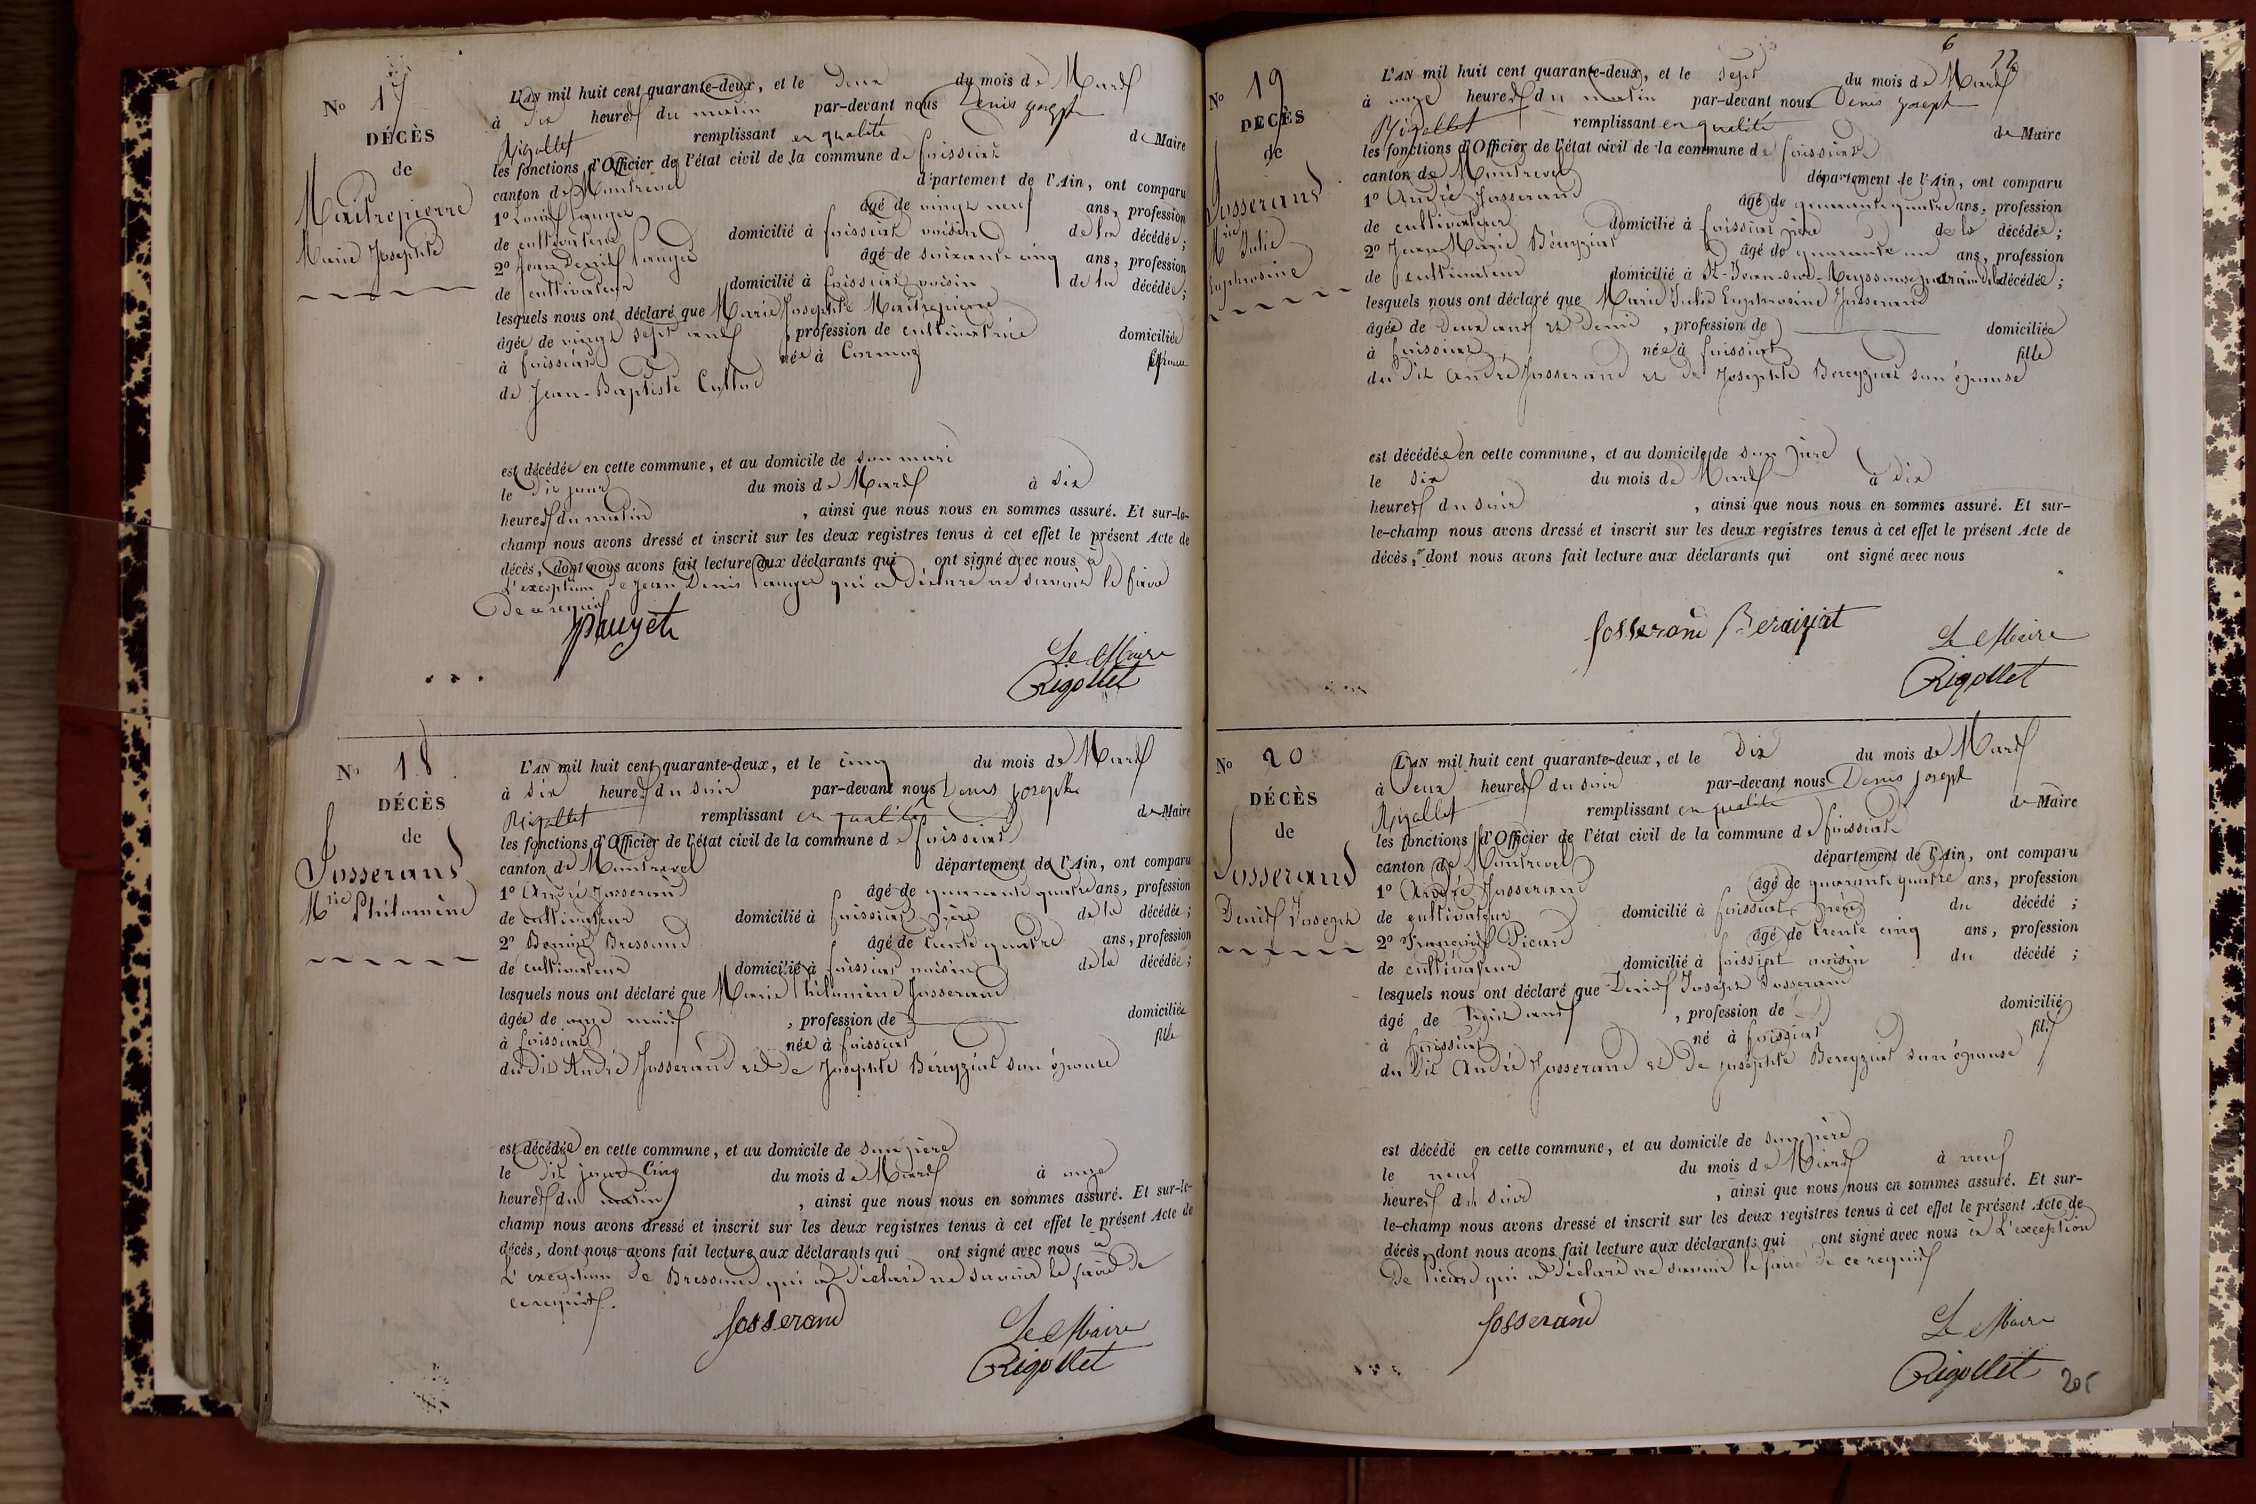 No 17
DÉCÈS
de
Maitrepierre
Marie Josephte
L'AN mil huit cent quarante-deux, et le deux du mois de Mars
à dix heures du matin par-devant nous Denis Joseph
Rigollet remplissant en qualité de Maire
les fonctions d'Officier de l'état civil de la commune de foissiat
canton de Montrevel département de l'Ain, ont comparu
1o Louis âgé de vingt neuf ans, profession
de cultivateur domicilié à foissiat voisin de la décédée;
2o Jean Denis âgé de soixante cinq ans, profession
de cultivateur domicilié à foissiat voisin de la décédée;
lesquels nous ont déclaré que Marie Josephte Maitrepierre
âgée de vingt sept ans, profession de cultivatrice domiciliée
à foissiat née à Cormoz épouse
de Jean-Baptiste
est décédée en cette commune, et au domicile de son mari
le dit jour du mois de Mars à six
heures du matin, ainsi que nous nous en sommes assuré. Et sur-le-
champ nous avons dressé et inscrit sur les deux registres tenus à cet effet le présent Acte de
décès, dont nous avons fait lecture aux déclarants qui ont signé avec nous à
L'exception de Jean Denis qui a déclaré ne savoir le faire
De ce requis
Le Maire
Rigollet
No 18
DÉCÈS
de
Josserand
Mrie Philomène
L'AN mil huit cent quarante-deux, et le cinq du mois de Mars
à six heures du soir par-devant nous Denis Joseph
Rigollet remplissant en qualité de Maire
les fonctions d'Officier de l'état civil de la commune de foissiat
canton de Montrevel département de l'Ain, ont comparu
1o André Josserand âgé de quarante quatre ans, profession
de cultivateur domicilié à foissiat père de la décédée;
2o Benoit Bressand âgé de trente quatre ans, profession
de cultivateur domicilié à foissiat voisin de la décédée;
lesquels nous ont déclaré que Marie Philomène Josserand
âgée de onze mois, profession de domiciliée
à foissiat née à foissiat fille
du dit André Josserand et de Josephte Béreyziat son épouse
est décédée en cette commune, et au domicile de son père
le dit jour Cinq du mois de Mars à onze
heures du matin, ainsi que nous nous en sommes assuré. Et sur-le-
champ nous avons dressé et inscrit sur les deux registres tenus à cet effet le présent Acte de
décès, dont nous avons fait lecture aux déclarants qui ont signé avec nous à
L'exception de Bressand qui a déclaré ne savoir le faire de
ce requis.
Josserand
Le Maire
Rigollet
6
22
No 19
DÉCÈS
de
Josserand
Mrie Julie
Euphrosine
L'AN mil huit cent quarante-deux, et le sept du mois de Mars
à onze heures du matin par-devant nous Denis Joseph
Rigollet remplissant en qualité de Maire
les fonctions d'Officier de l'état civil de la commune de foissiat
canton de Montrevel département de l'Ain, ont comparu
1o André Josserand âgé de quarante quatre ans, profession
de cultivateur domicilié à foissiat père de la décédée;
2o Jean Marie Béreyziat âgé de quarante un ans, profession
de cultivateur domicilié à St-Jean-sur-Reyssouze parrain de la décédée;
lesquels nous ont déclaré que Marie Julie Euphrosine Josserand
âgée de Deux ans et Demi, profession de domiciliée
à foissiat née à foissiat fille
du dit André Josserand et de Josephte Bereyziat son épouse
est décédée en cette commune, et au domicile de son père
le six du mois de Mars à dix
heures du soir, ainsi que nous nous en sommes assuré. Et sur-
le-champ nous avons dressé et inscrit sur les deux registres tenus à cet effet le présent Acte de
décès, dont nous avons fait lecture aux déclarants qui ont signé avec nous
Josserand Beraiziat
Le Maire
Rigollet
No 20
DÉCÈS
de
Josserand
Denis Joseph
L'AN mil huit cent quarante-deux, et le Dix du mois de Mars
à Deux heures du soir par-devant nous Denis Joseph
Rigollet remplissant en qualité de Maire
les fonctions d'Officier de l'état civil de la commune de foissiat
canton de Montrevel département de l'Ain, ont comparu
1o André Josserand âgé de quarante quatre ans, profession
de cultivateur domicilié à foissiat père du décédé;
2o François Picard âgé de trente cinq ans, profession
de cultivateur domicilié à foissiat voisin du décédé;
lesquels nous ont déclaré que Denis Joseph Josserand
âgé de trois ans, profession de domicilié
à foissiat né à foissiat fils
du dit André Josserand et de Josephte Bereyziat son épouse
est décédé en cette commune, et au domicile de son père
le neuf du mois de Mars à neuf
heures du soir, ainsi que nous nous en sommes assuré. Et sur-
le-champ nous avons dressé et inscrit sur les deux registres tenus à cet effet le présent Acte de
décès, dont nous avons fait lecture aux déclarants qui ont signé avec nous à L'exception
De Picard qui a déclaré ne savoir le faire de ce requis
Josserand
Le Maire
Rigollet
205